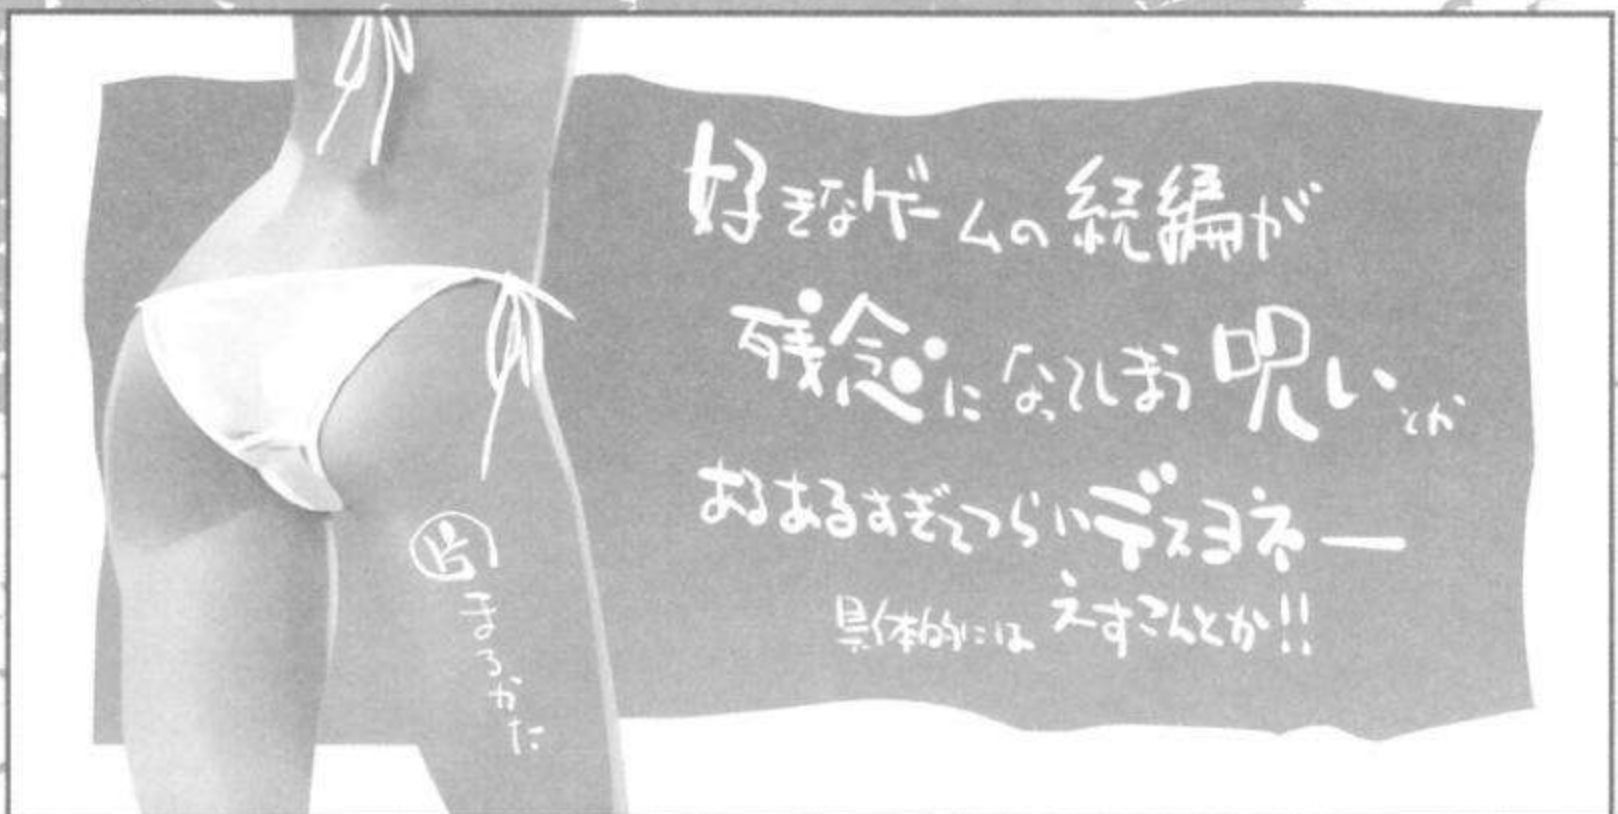 好きなゲームの続編が
残念になってしまう呪いとか
あるあるすぎてつらいデスヨネー
具体的にはえすこんとか!!
片
まるかた